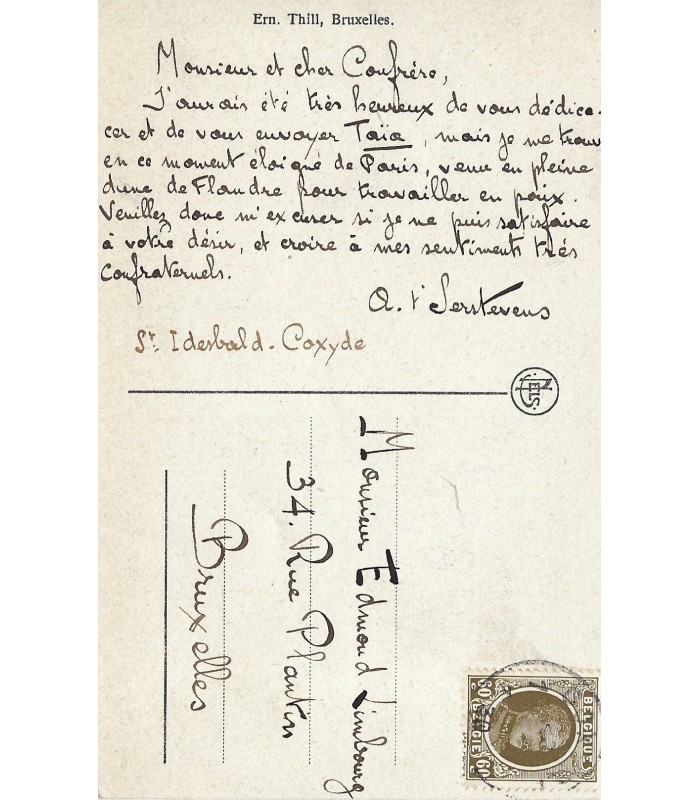 Ern. Thill, Bruxelles.
Monsieur et cher Confrère,
J'aurais été très heureux de vous dédica-
cer et de vous envoyer Taïa, mais je me trouv
en ce moment éloigné de Paris, venu en pleine
dune de Flandre pour travailler en paix.
Veuillez donc m'excuser si je ne puis satisfaire
à votre désir, et croire à mes sentiments très
confraternels.
A. t'Serstevens
St. Idesbald - Coxyde
NELS
Monsieur Edmond Limbourg
34. Rue Plantin
Bruxelles
BELGIQUE
60 BELGIE 60